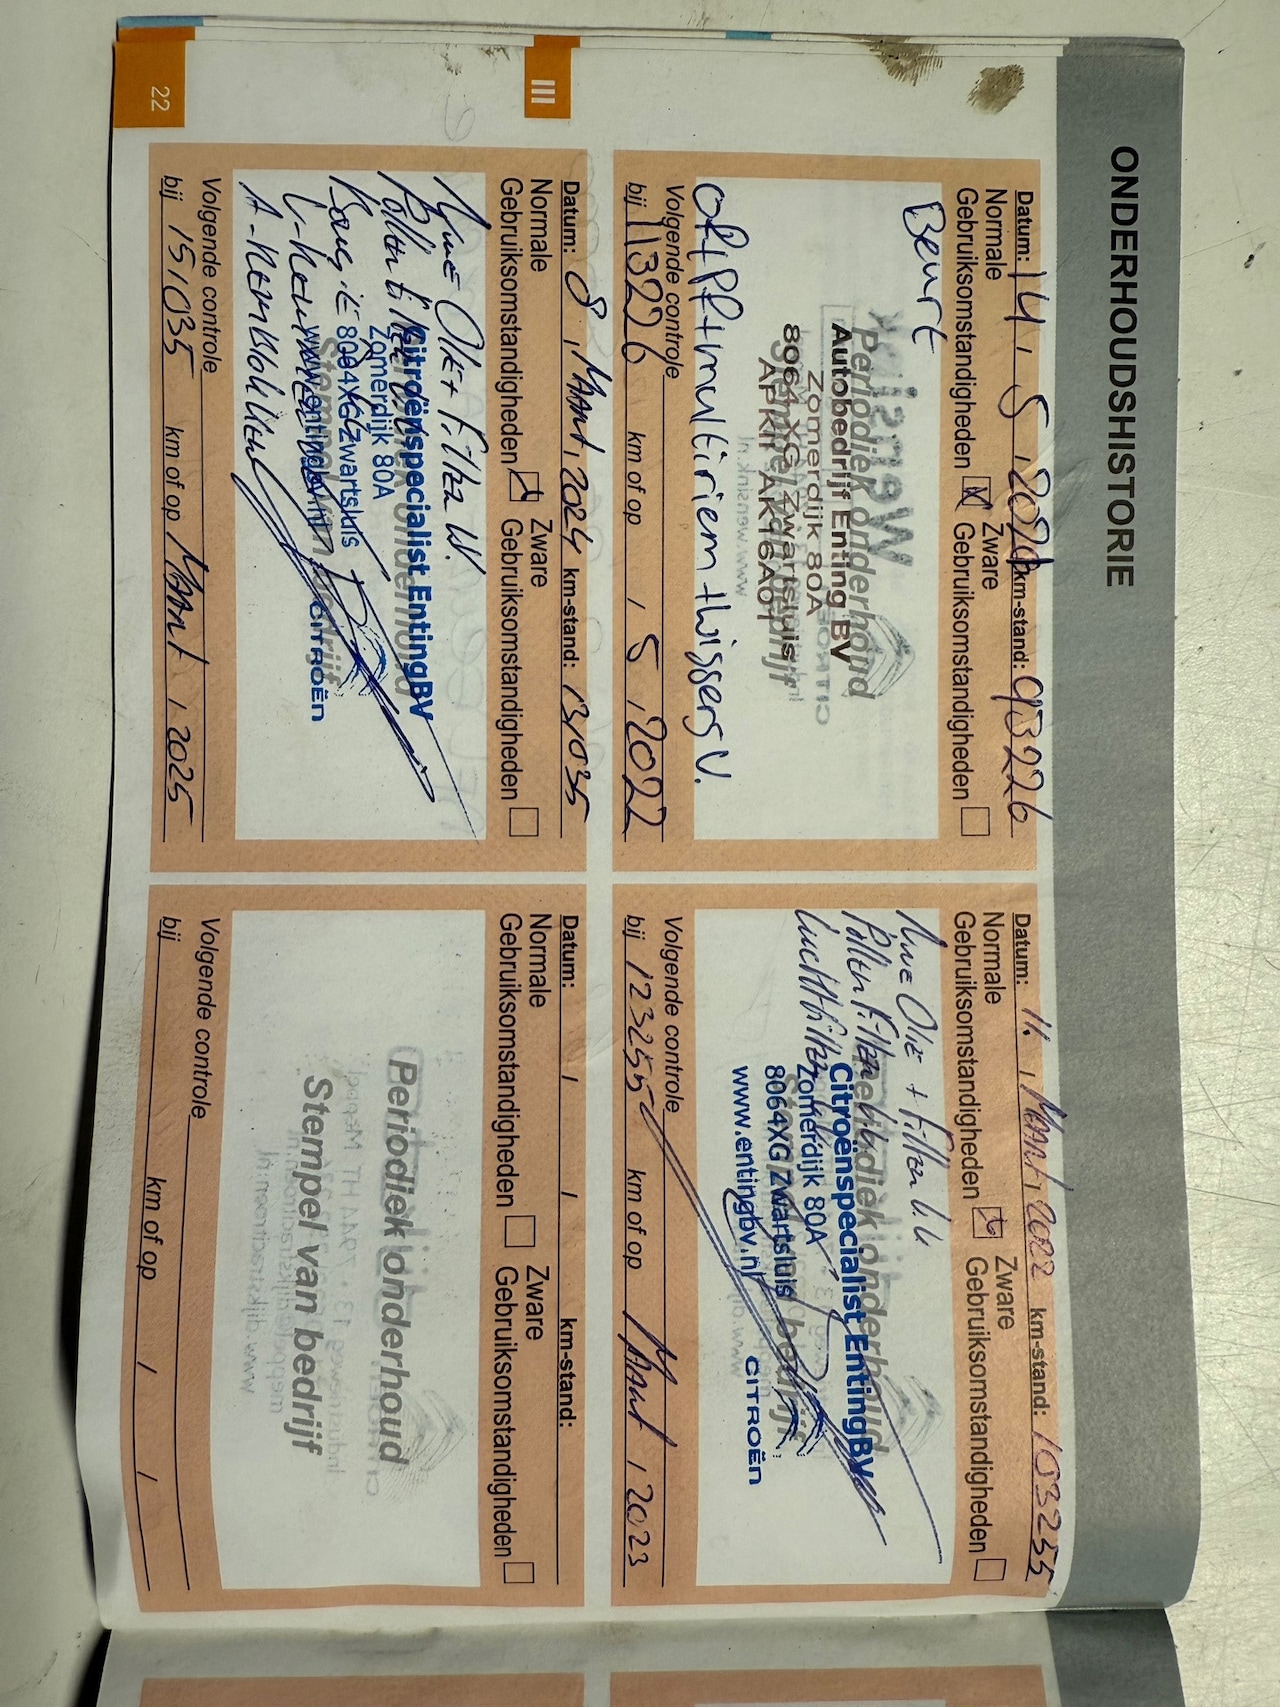 ONDERHOUDSHISTORIE
Datum: 14, 5, 2021 km-stand: 93226
Normale Gebruiksomstandigheden
Zware Gebruiksomstandigheden
Beurt
Periodiek onderhoud
Autobedrijf Enting BV
Zomerdijk 80A
8064 XG Zwartsluis
APKII AK16A01
of+pf+multiriem+wissers V.
Volgende controle
bij 113226 km of op / 5, 2022
Datum: 11, Maart, 2022 km-stand: 103255
Normale Gebruiksomstandigheden
Zware Gebruiksomstandigheden
Nwe Olie + Filter
Pollen Filter
Luchtfilter
Periodiek onderhoud
Citroënspecialist Enting BV
Zomerdijk 80A
8064XG Zwartsluis
www.entingbv.nl
CITROËN
Volgende controle
bij 123255 km of op Maart, 2023
III
Datum: 8, Maart, 2024 km-stand: 131035
Normale Gebruiksomstandigheden
Zware Gebruiksomstandigheden
Nwe Olie + Filter
Pollen Filter
Bougie
Citroënspecialist Enting BV
Zomerdijk 80A
8064XG Zwartsluis
www.entingbv.nl
CITROËN
Volgende controle
bij 151035 km of op Maart, 2025
Datum: / / km-stand:
Normale Gebruiksomstandigheden
Zware Gebruiksomstandigheden
Periodiek onderhoud
Stempel van bedrijf
Volgende controle
bij km of op / /
22